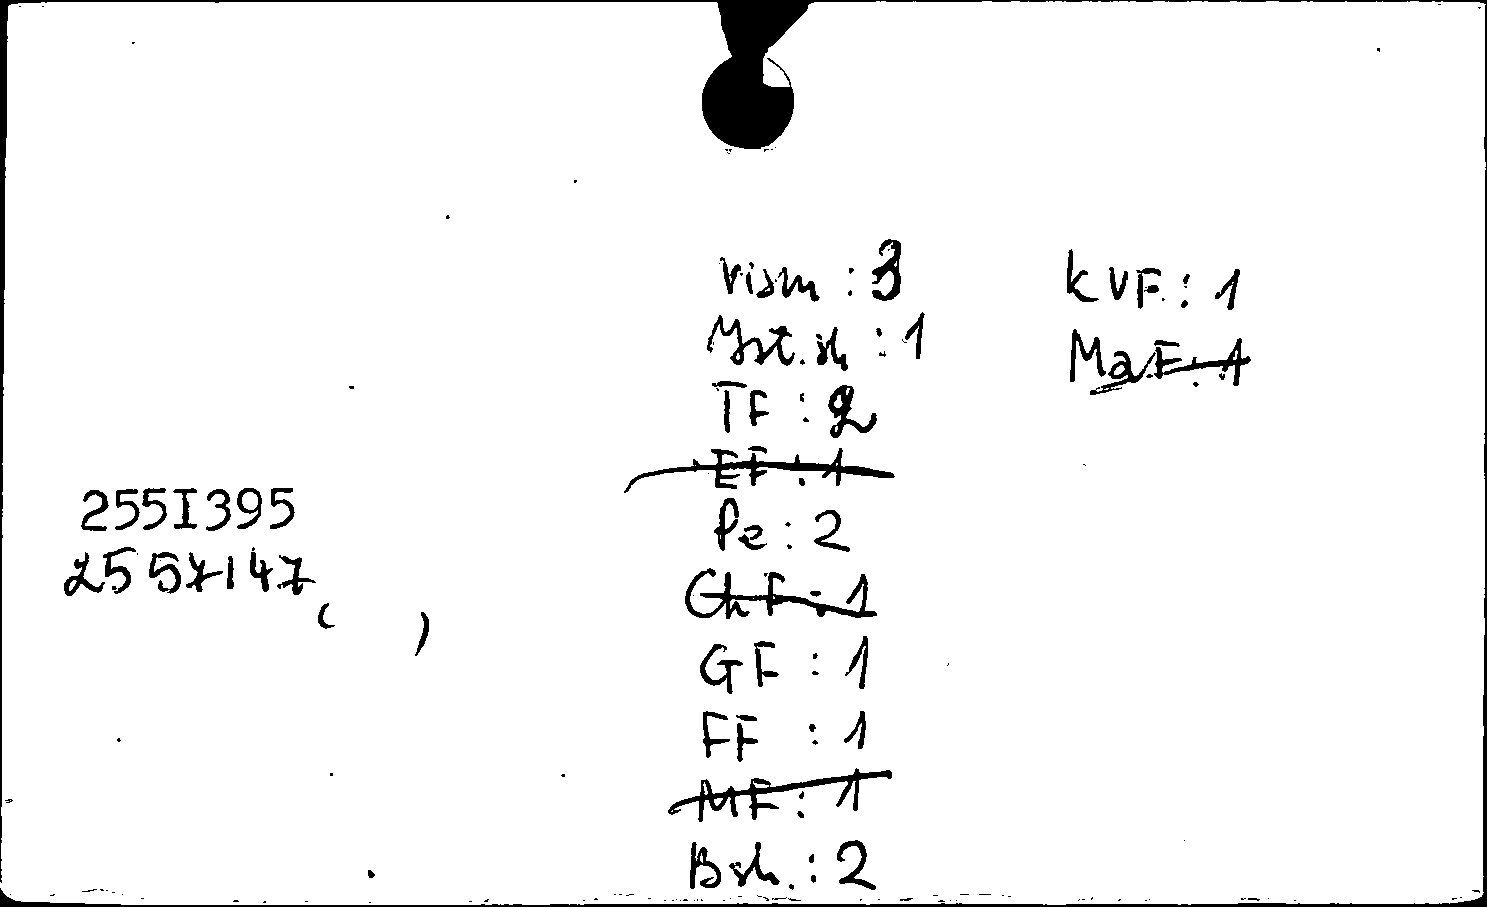 255I395
2557147
( )
Vism : 3
Yst.sh : 1
TF : 2
EF : 1
Pe : 2
GhF : 1
GF : 1
FF : 1
MF : 1
Bsh. : 2
KVF : 1
MaF : 1